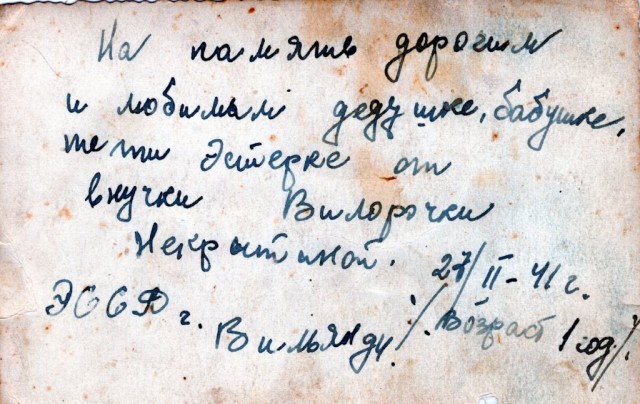 На память дорогим
и любимым дедушке, бабушке,
тети Эстерке от
внучки Вилорочки
Некрытиной. 27/II-41 г.
ЭССР г. Вильянди /. Возраст 1 год/.